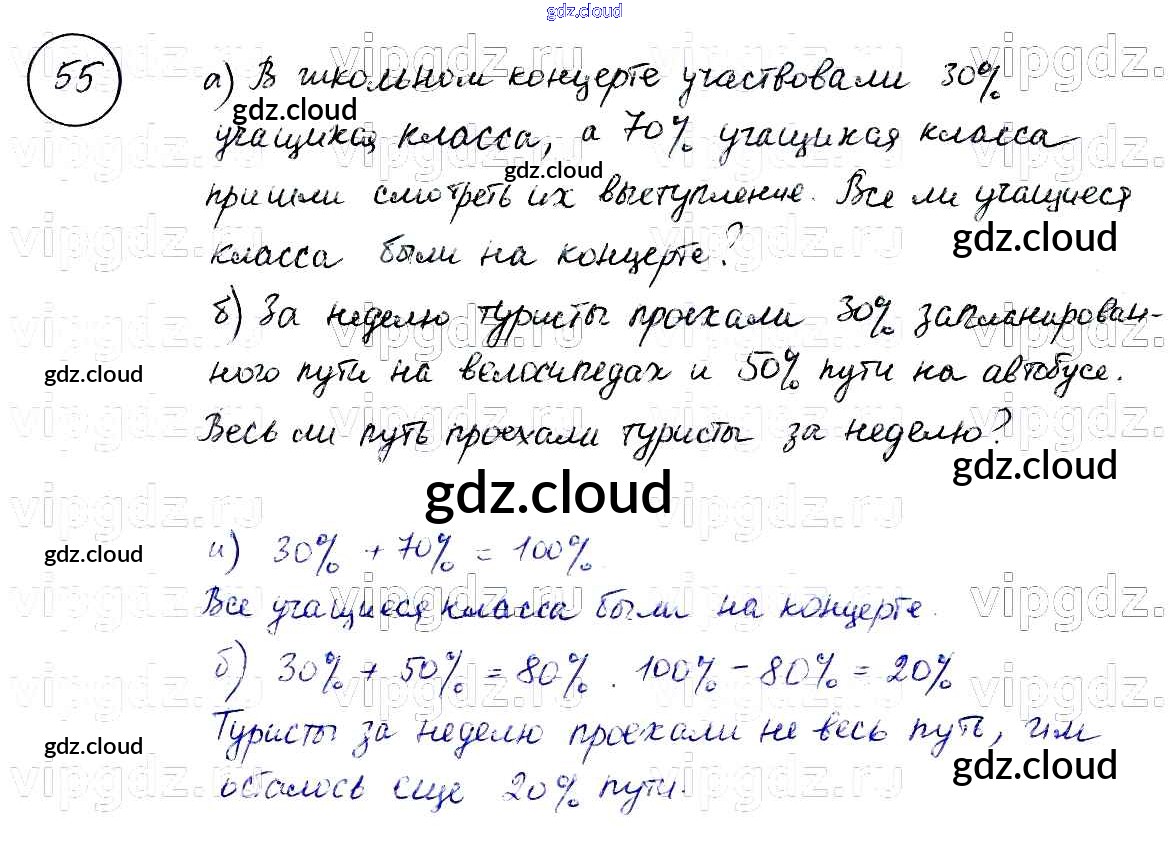 gdz.cloud
55
а) В школьном концерте участвовали 30%
gdz.cloud
учащихся класса, а 70% учащихся класса
gdz.cloud
пришли смотреть их выступление. Все ли учащиеся
gdz.cloud
класса были на концерте?
б) За неделю туристы проехали 30% запланирован-
gdz.cloud
ного пути на велосипедах и 50% пути на автобусе.
Весь ли путь проехали туристы за неделю?
gdz.cloud
gdz.cloud
gdz.cloud
а) 30% + 70% = 100%.
Все учащиеся класса были на концерте.
б) 30% + 50% = 80%. 100% - 80% = 20%
Туристы за неделю проехали не весь путь, им
gdz.cloud
gdz.cloud
осталось еще 20% пути.
vipgdz.ru